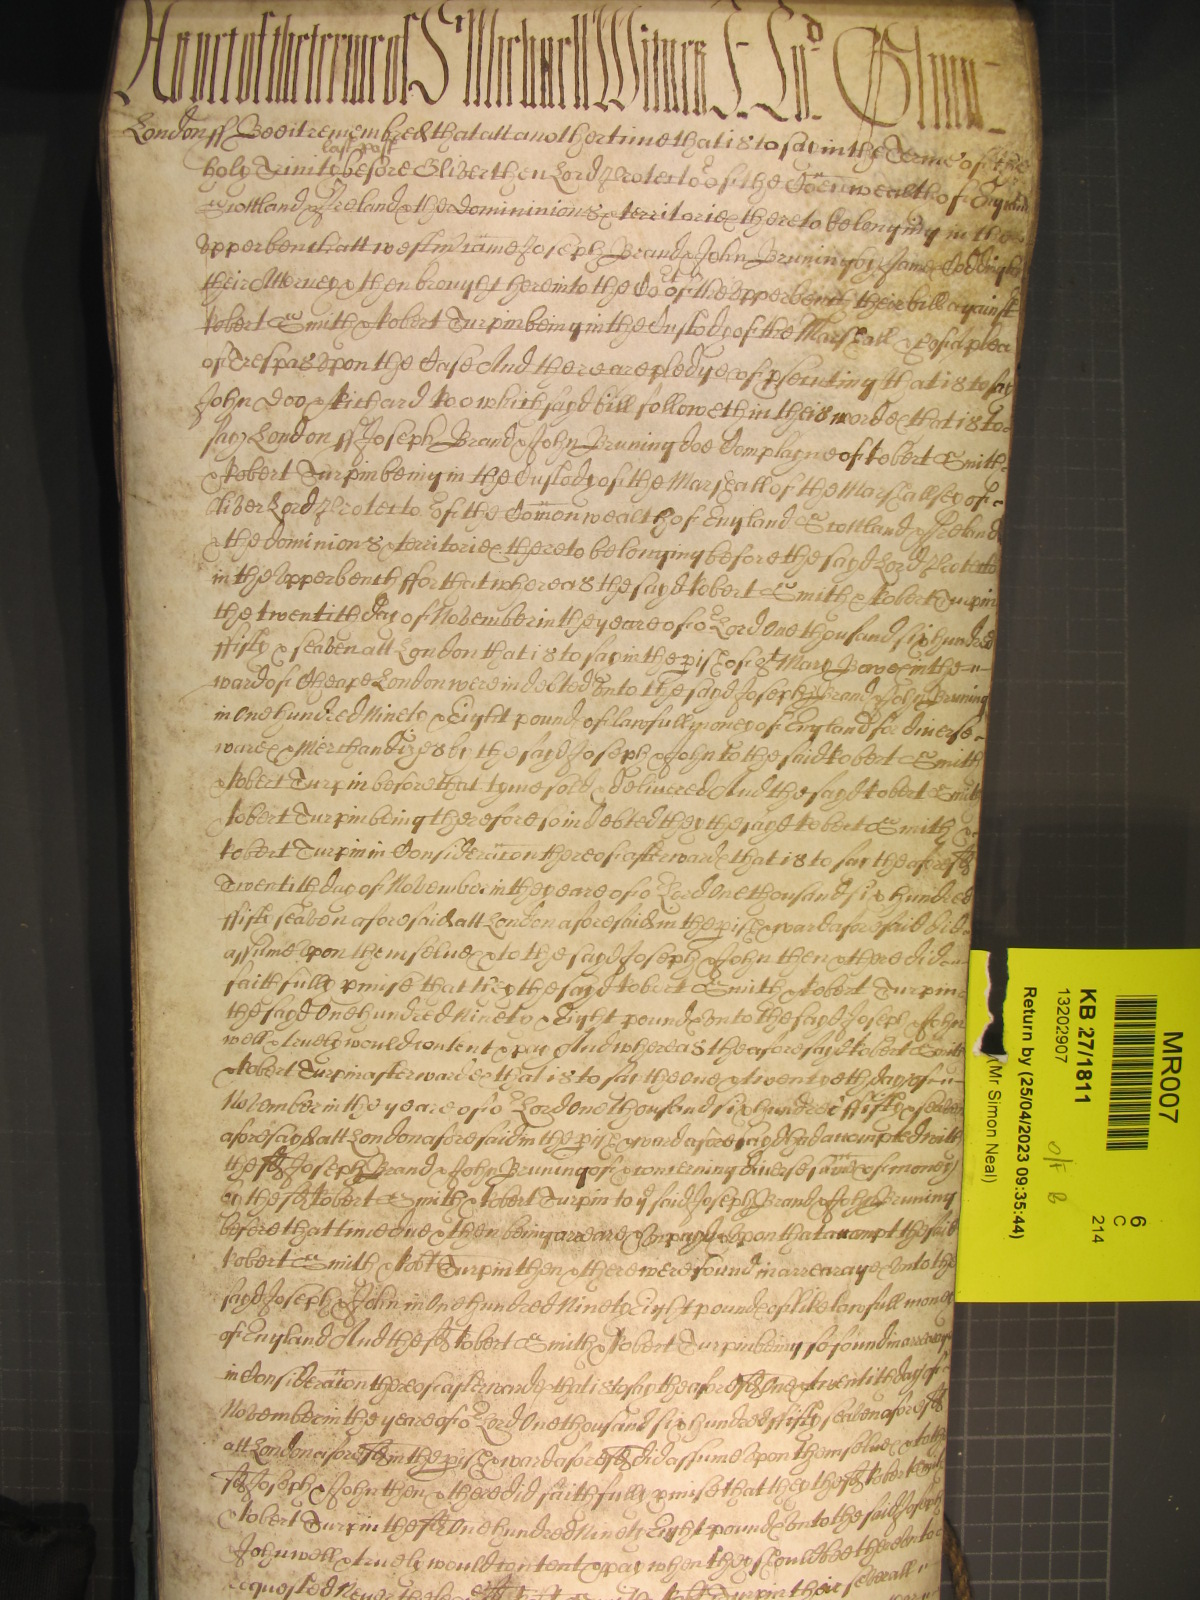 As yet of the terme of St Michaell Witnes J: Lrd Glynn
London ss Bee it remembred that att another time that is to say in the Terme of the
holy Trinity last past before Oliver then Lord Protector of the Com̄onwealth of England
Scotland & Ireland & the Dominions & territories thereto belonging in the
upper bench att westm̄ came Joseph Brand & John Bruning by James Coddington
their Atterney & then brought here into the Cort of the upper bench their bill against
Robert Smith & Robert Turpin being in the Custody of the Marshall &c of a plea
of Trespas upon the Case And there are pledges of psecuting that is to say
John Doo & Richard Roo which sayd bill followeth in theis wordes that is to
say London ss Joseph Brand & John Bruning doe Complayne of Robert Smith
& Robert Turpin being in the Custody of the Marshall of the Marshallsey of
Oliver Lord Protector of the Com̄onwealth of England Scottland & Ireland
& the dominions & territories thereto belonging before the sayd Lord Protector
in the upper bench ffor that whereas the sayd Robert Smith & Robert Turpin
the twentith day of November in the yeare of or Lord One thousand six hundred
ffifty & seaven att London that is to say in the pish of St Mary Bowe in the
ward of Cheape London were indebted unto the sayd Joseph Brand & John Bruning
in One hundred Ninety & Eight pounds of lawfull money of England for diverse
wares & Merchandizes by the sayd Joseph & John to the said Robert Smith
& Robert Turpin before that tyme sold & delivered And the sayd Robert Smith
& Robert Turpin being therefore so indebted they the sayd Robert Smith &
Robert Turpin in Consideracōn thereof afterwards that is to say the aforesd
Twentith day of November in the yeare of or Lord One thousand six hundred
ffifty seaven aforesaid att London aforesaid in the pish & ward aforesaid did
assume upon themselves & to the sayd Joseph & John then & there did
faithfully pmise that they the sayd Robert Smith & Robert Turpin
the sayd One hundred Ninety & Eight pounds unto the sayd Joseph & John
well & truely would content & pay And whereas the aforesayd Robert Smith
& Robert Turpin afterwards that is to say the One & twentyeth day of
November in the yeare of or Lord One thousand six hundred ffifty & seaven
aforesayd att London aforesaid in the pish & ward aforesayd had accompted with
the sd Joseph Brand & John Bruning of & concerning diverse sum̄es of money
by the sd Robert Smith & Robert Turpin to ye said Joseph Brand & John Bruning
before that time due & then being arreare & unpayd & upon that accompt the said
Robert Smith & Robt Turpin then & there were found in arrearages unto the
sayd Joseph & John in One hundred Ninety Eight pounds of like lawfull money
of England And the sd Robert Smith & Robert Turpin being so found in arrerages
in Consideracōn thereof afterwards that is to say the aforesd One & twentith day of
November in the yeare of or Lord One thousand six hundred ffifty seaven aforesd
att London aforesd in the pish & ward aforesd did assume upon themselves & to the
sd Joseph & John then & there did faithfully pmise that they the sd Robert Smith
& Robert Turpin the sd One hundred Ninety Eight pounds unto the said Joseph
& John well & truely would content & pay when they should bee thereunto
requested Nevertheles Turpin their severall
MR007
6
C
214
KB 27/1811
13202907
o/f B
Return by (25/04/2023 09:35:44)
(Mr Simon Neal)